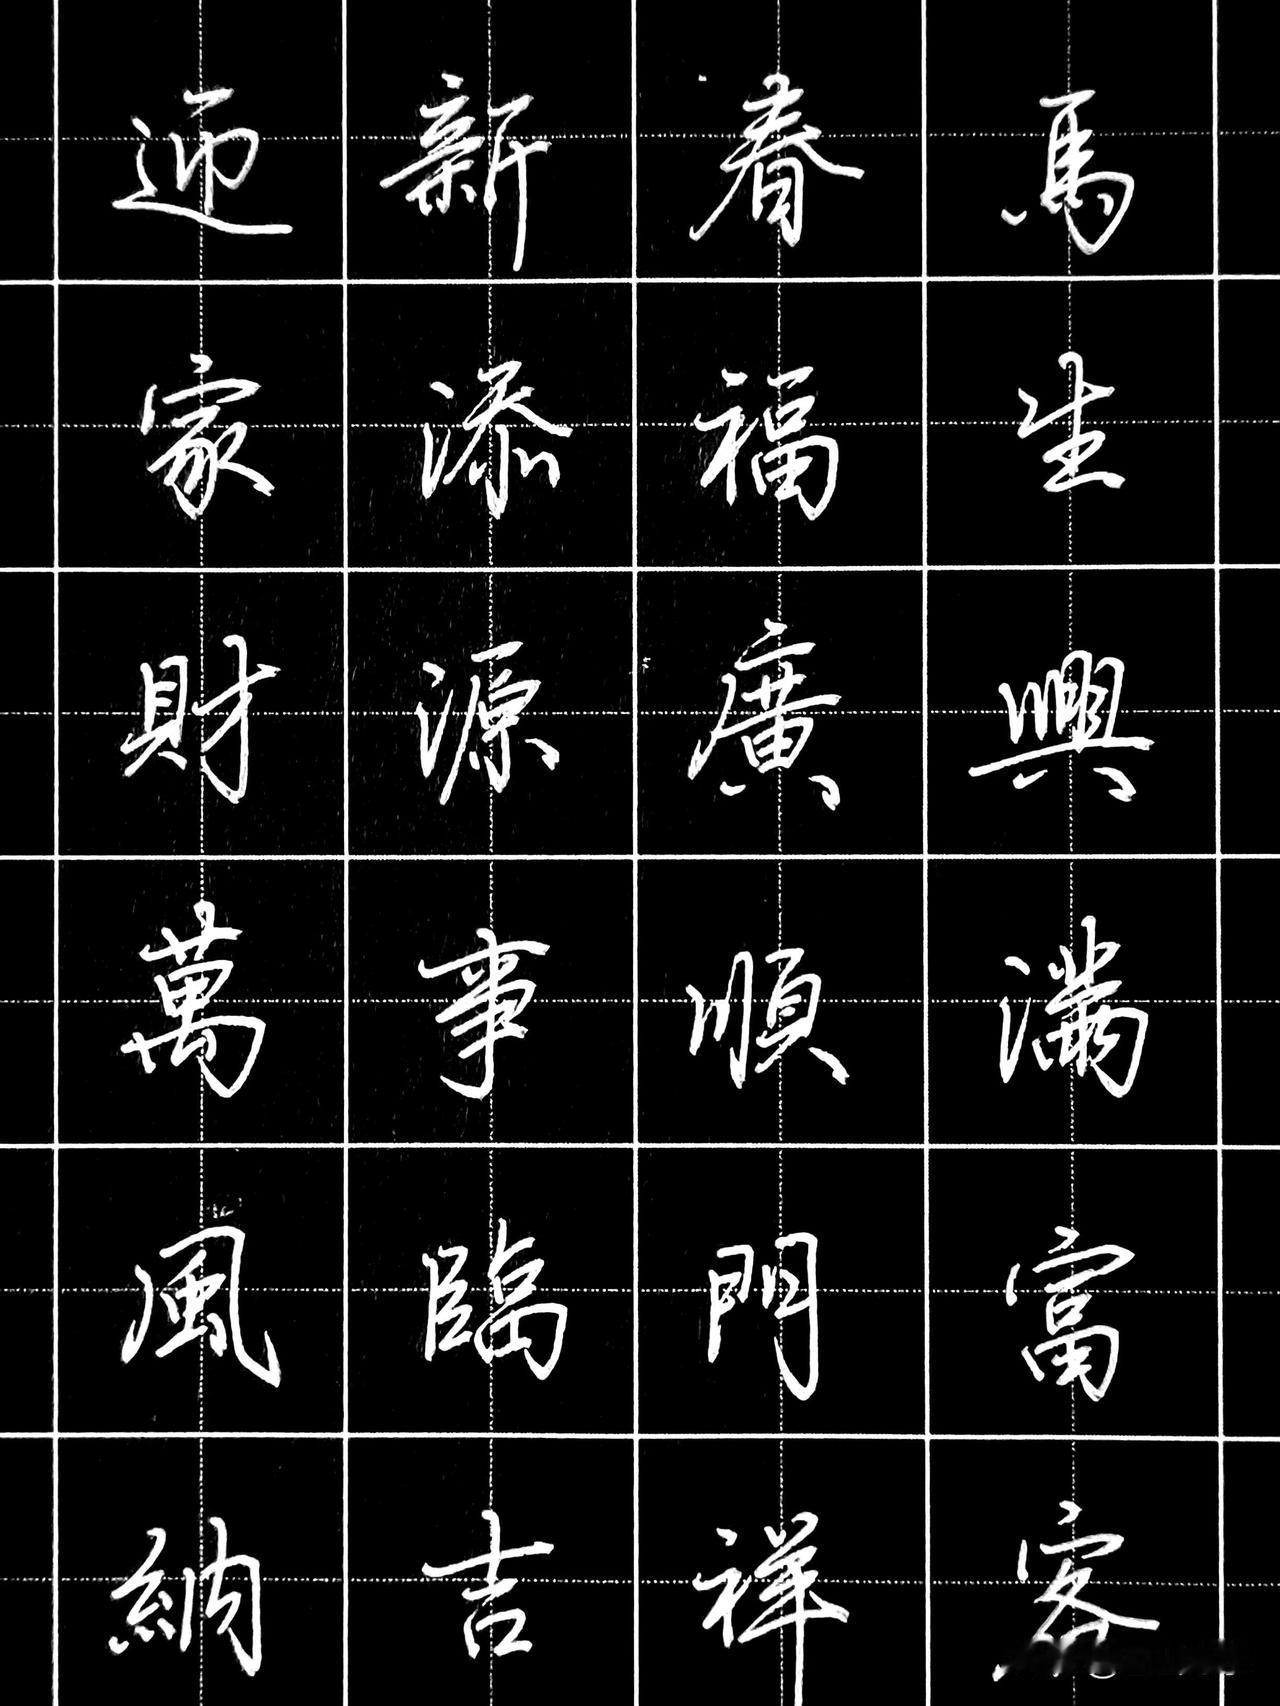 迎新春馬
家添福生
財源廣興
萬事順滿
風臨門富
納吉祥客